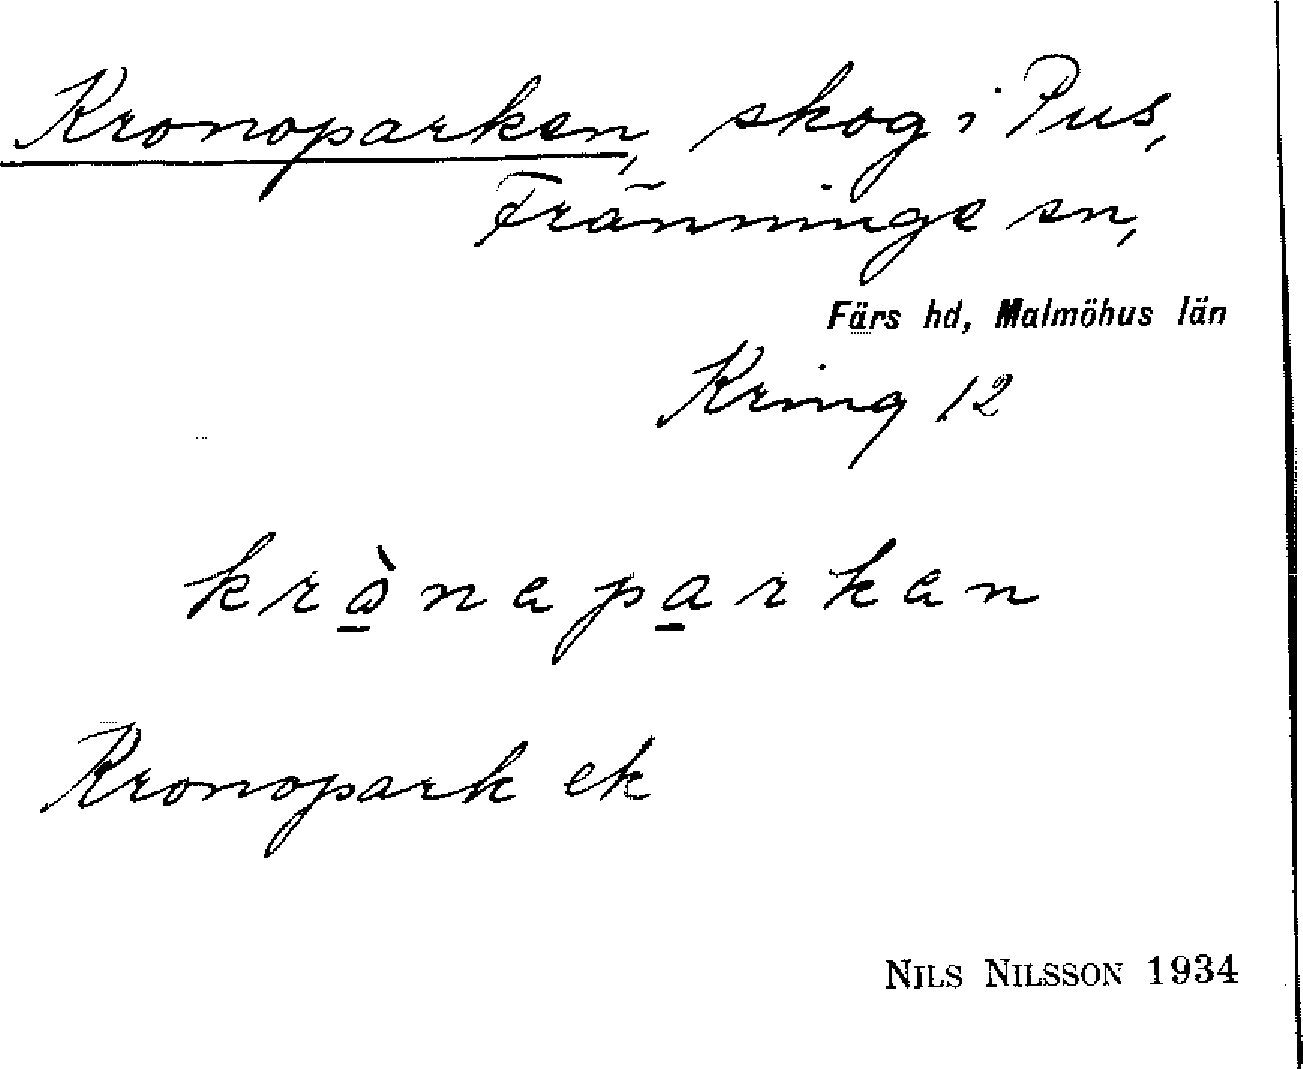 Kronoparken, skog i Pus,
Fränninge sn,
Färs hd, Malmöhus län
Kring 12
Kronopark ek
NILS NILSSON 1934